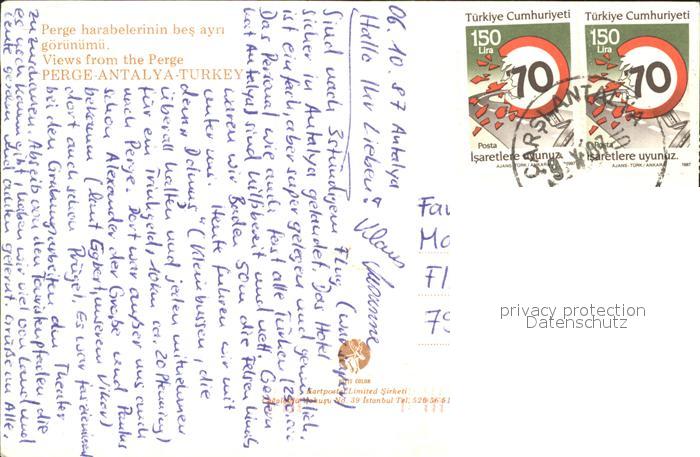 Perge harabelerinin beş ayrı
görünümü.
Views from the Perge
PERGE-ANTALYA-TURKEY
06.10.87 Antalya
Hallo Ihr Lieben!
Sind nach 3stündigem Flug
sicher in Antalya gelandet. Das Hotel
ist einfach, aber super gelegen und gemütlich.
Das Personal, wie auch fast alle Türken
sind hilfsbereit und nett. Gestern
waren wir Baden 50m die Felsen
unter uns. Heute fuhren wir mit
dem Dolmus "(Kleinbussen, die
überall halten und jeden mitnehmen
für ein Trinkgeld, 10km ca. 20 Pfennig)
nach Perge. Dort war außer uns auch
schon Alexander der Große und Paulus
bekamm (laut Egbert, unserem Vikar)
dort auch schon Prügel. Es war faszinierend
bei den Grabungsarbeiten, den Theater
zuzuschauen. Abseits von den Touristenpfaden, die
es noch kaum gibt, haben wir viel von Land und
Leute gesehen und kennen gelernt. Grüße an Alle.
Klaus
Türkiye Cumhuriyeti
150
Lira
70
Posta
İşaretlere uyunuz.
AJANS-TÜRK / ANKARA 1987
Türkiye Cumhuriyeti
150
Lira
70
Posta
İşaretlere uyunuz.
AJANS-TÜRK / ANKARA 1987
ANTALYA
Fa
Mo
Fl
79
COLOR
Kartpostal Limited Şirketi
Yokuşu No. 39 İstanbul Tel.
privacy protection
Datenschutz